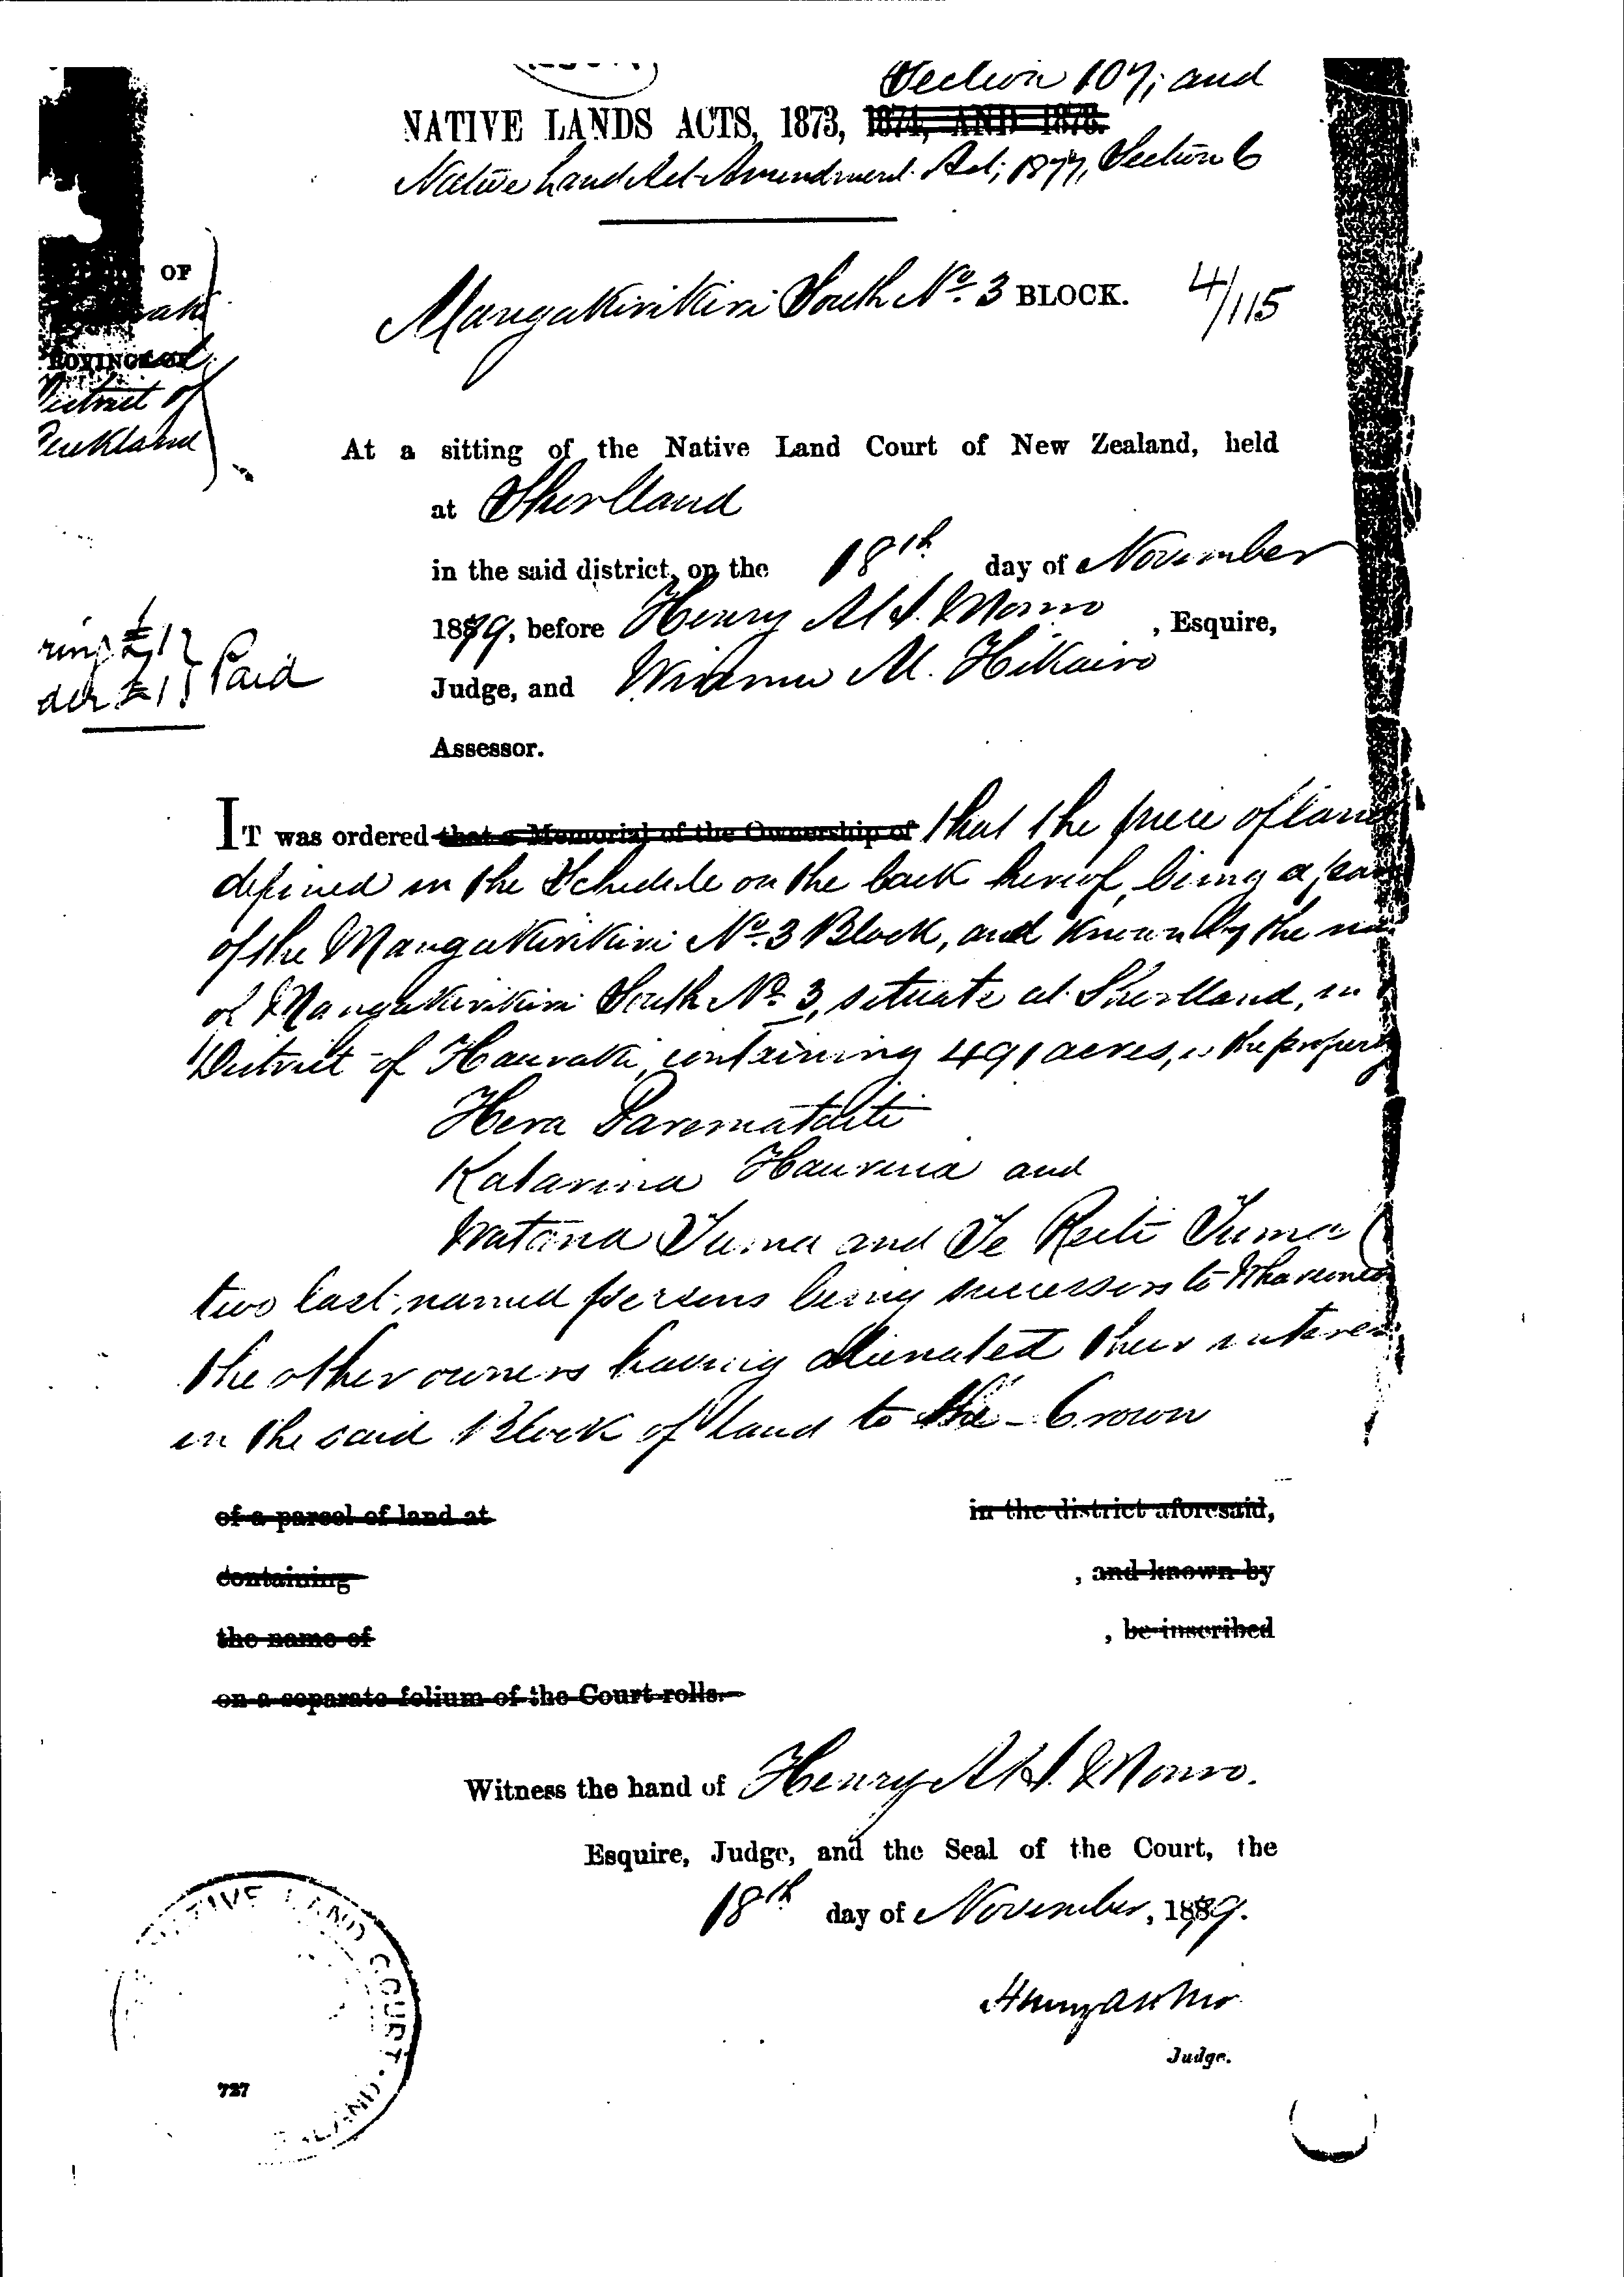 Section 107; and
NATIVE LANDS ACTS, 1873, 1874, AND 1878.
Native Land Act Amendment Act, 1877, Section 6
OF
Mangakirikiri South No. 3 BLOCK. 4/115
District of
Auckland
At a sitting of the Native Land Court of New Zealand, held
at Shortland
in the said district, on the 18th day of November
1879, before Henry A. H. Monro, Esquire,
Paid
Judge, and Wiremu M. Hikairo
Assessor.
IT was ordered that a Memorial of the Ownership of that the piece of land
defined in the Schedule on the back hereof, being a
of the Mangakirikiri No. 3 Block, and known by the
of Mangakirikiri South No. 3, situate at Shortland, in
District of Hauraki, containing 491 acres, is the property
Hera
Katarina and
Watana Tuma and Te Reiti Tuma (
two last named persons being successors to
the other owners having alienated their
in the said Block of land to the Crown
of a parcel of land at in the district aforesaid,
containing , and known by
the name of , be inscribed
on a separate folium of the Court rolls.
Witness the hand of Henry A. H. Monro.
Esquire, Judge, and the Seal of the Court, the
18th day of November, 1879.
Judge.
NATIVE LAND COURT
727